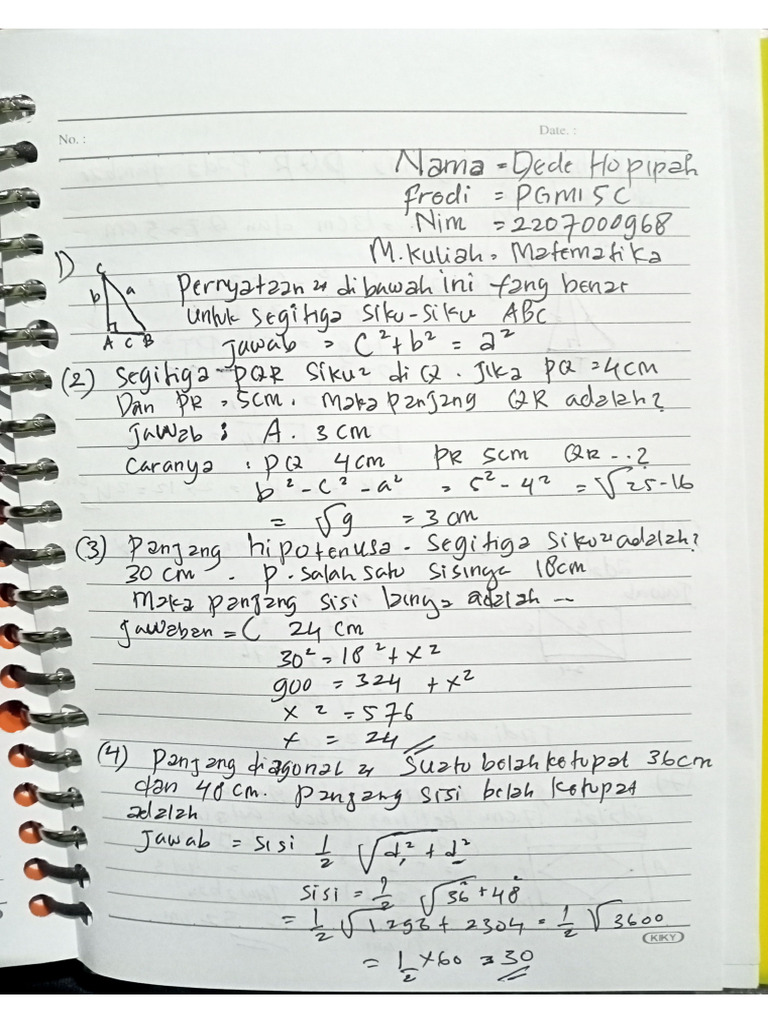 No. :
Date. :
Nama = Dede Hopipah
Prodi = PGMI 5C
Nim = 2207000968
M. Kuliah = Matematika
1)
C
b a
A C B
Pernyataan² dibawah ini yang benar
untuk segitiga siku-siku ABC
Jawab = C² + b² = a²
(2) Segitiga PQR siku² di Q. Jika PQ = 4cm
Dan PR = 5cm. maka panjang QR adalah?
Jawab : A. 3 cm
Caranya : PQ 4cm PR 5cm QR ..?
b² - c² - a² = 5² - 4² = √25-16
= √9 = 3 cm
(3) Panjang hipotenusa. Segitiga siku² adalah?
30 cm. P. salah satu sisinya 18cm
Maka panjang sisi lainya adalah ...
Jawaban = C 24 cm
30² = 18² + x²
900 = 324 + x²
x² = 576
x = 24
(4) Panjang diagonal² Suatu belah ketupat 36cm
dan 48 cm. panjang sisi belah ketupat
adalah
Jawab = sisi 1/2 √d₁² + d²
sisi = 1/2 √36² + 48²
= 1/2 √1296 + 2304 = 1/2 √3600
= 1/2 × 60 = 30
KIKY